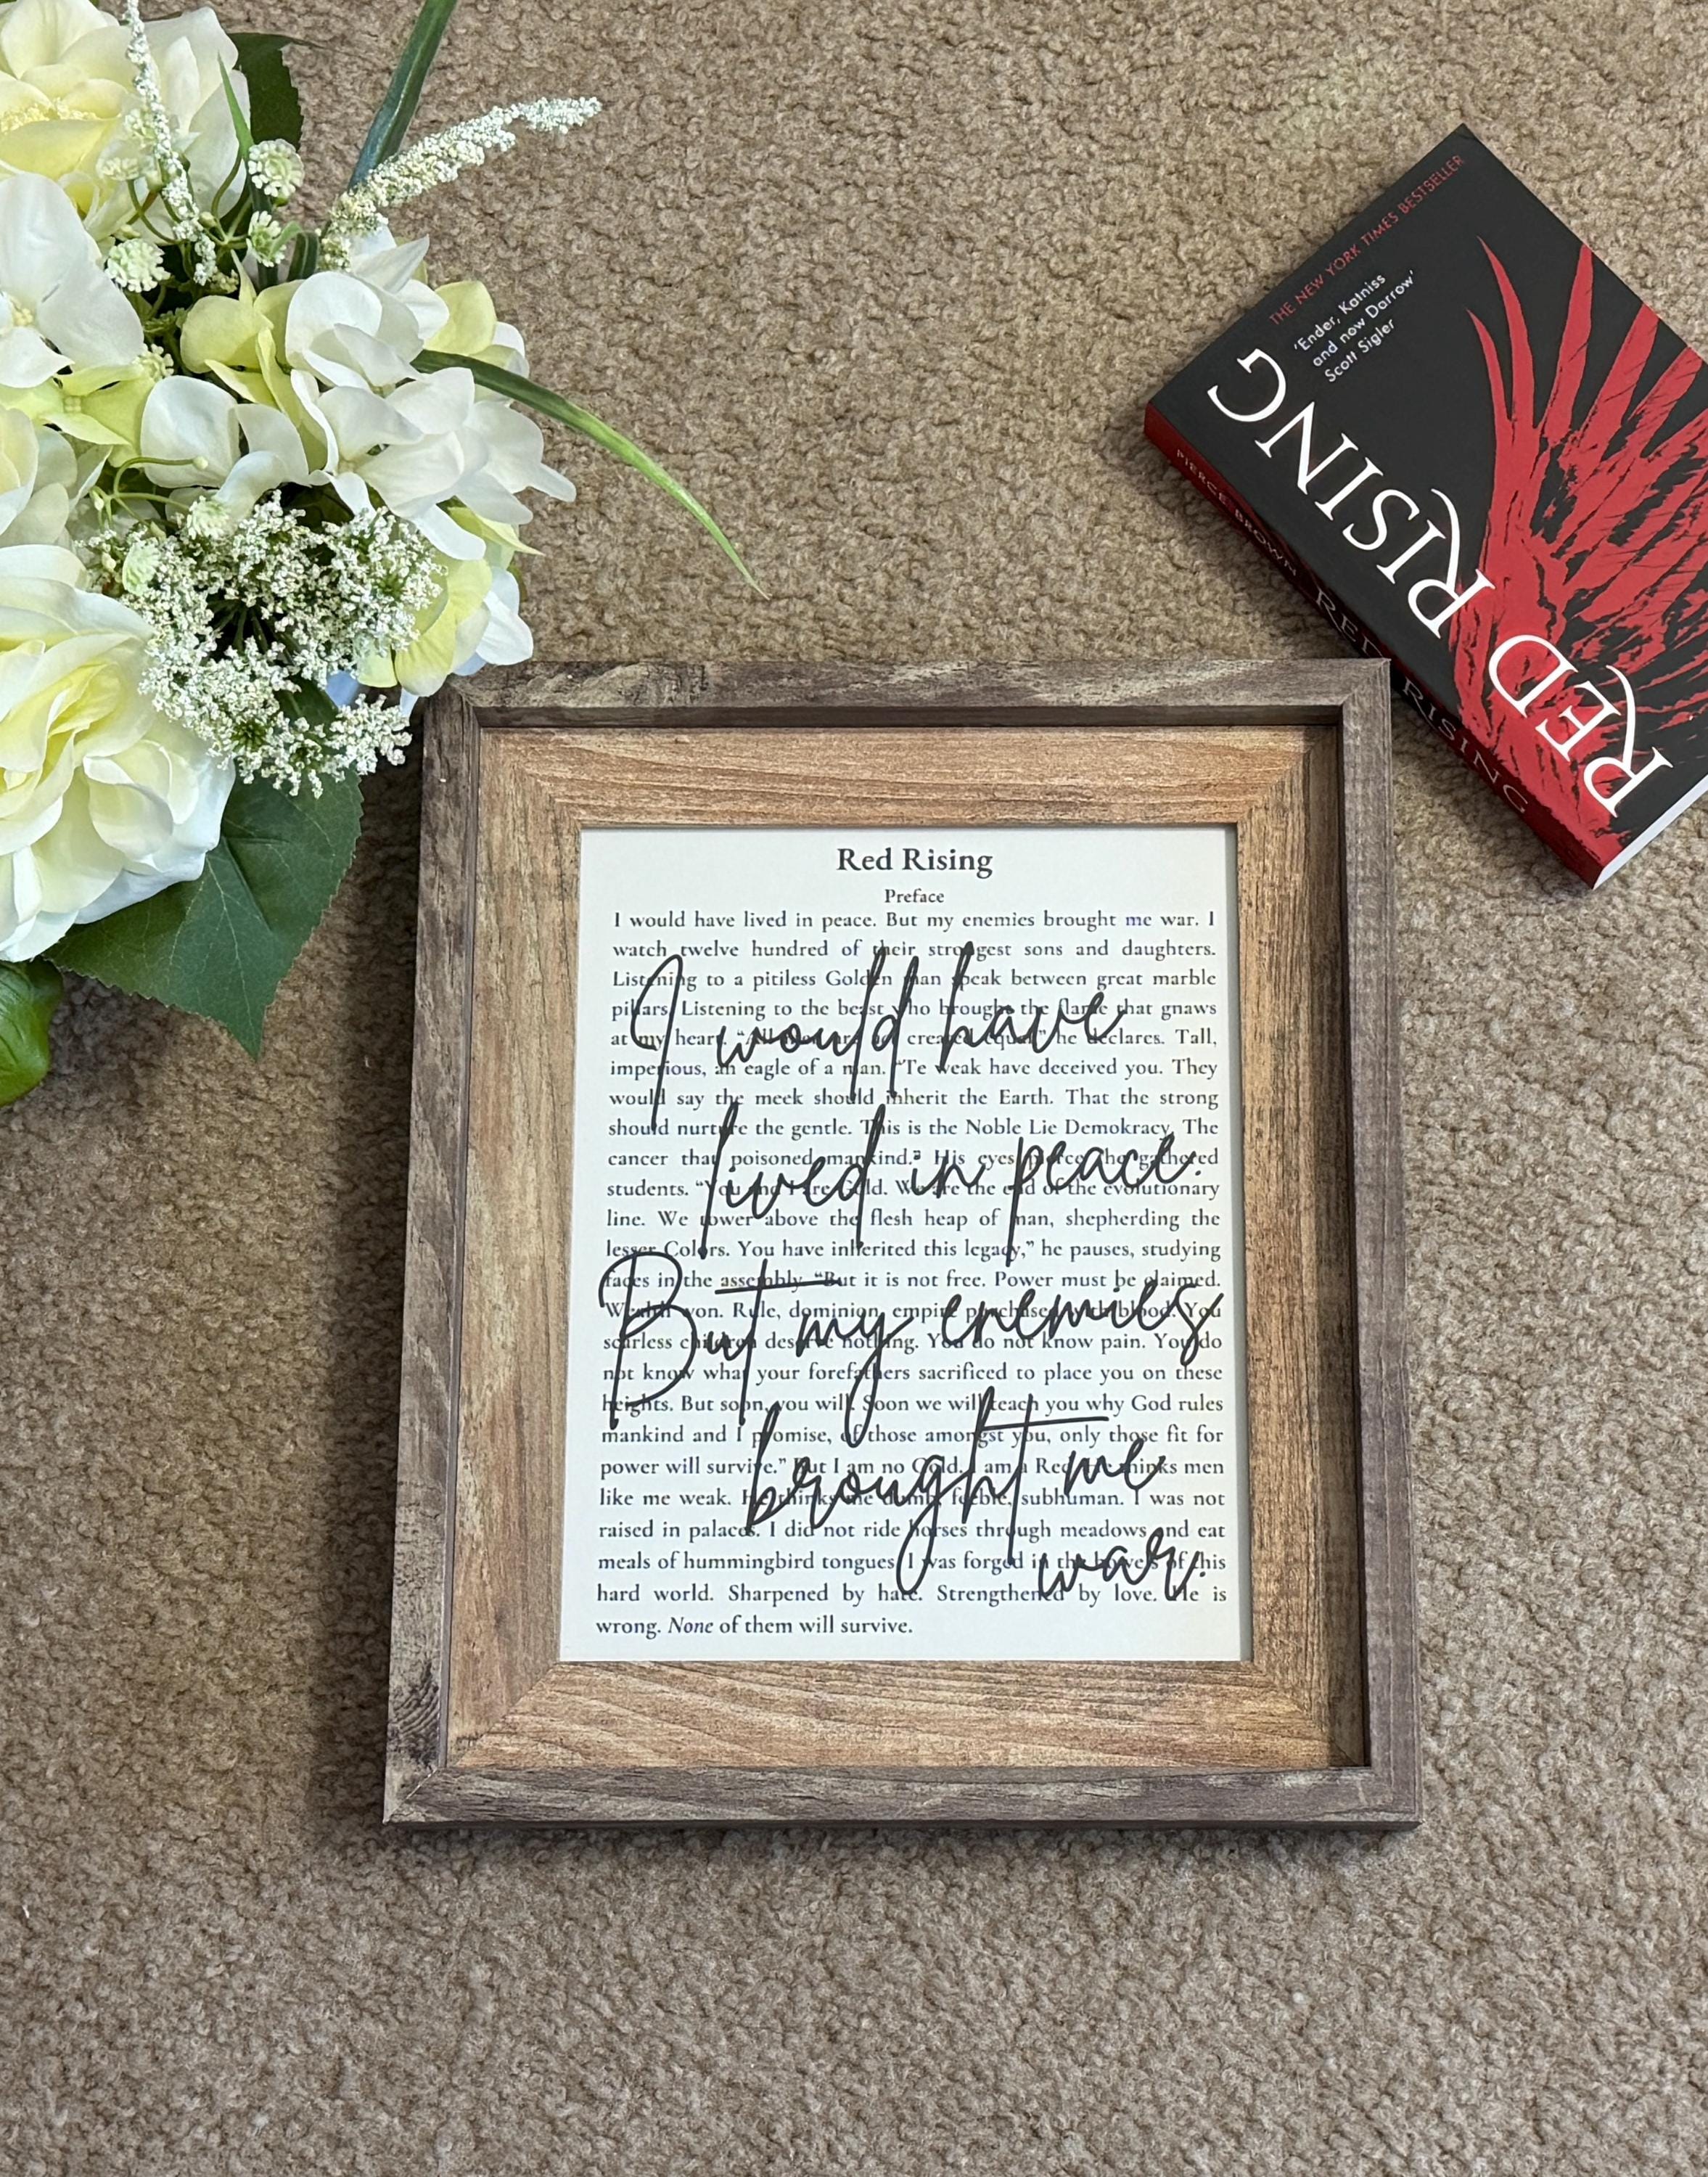 THE NEW YORK TIMES BESTSELLER
'Ender, Katniss
and now Darrow'
Scott Sigler
RED RISING
PIERCE BROWN RED RISING
Red Rising
Preface
I would have lived in peace. But my enemies brought me war. I
watch twelve hundred of their strongest sons and daughters.
Listening to a pitiless Golden man speak between great marble
pillars. Listening to the beast who brought the flame that gnaws
at my heart. “All men are not created equal,” he declares. Tall,
imperious, an eagle of a man. “Te weak have deceived you. They
would say the meek should inherit the Earth. That the strong
should nurture the gentle. This is the Noble Lie Demokracy. The
cancer that poisoned mankind.” His eyes pierce the gathered
students. “You and I are Gold. We are the end of the evolutionary
line. We tower above the flesh heap of man, shepherding the
lesser Colors. You have inherited this legacy,” he pauses, studying
faces in the assembly. “But it is not free. Power must be claimed.
Wealth won. Rule, dominion, empire purchased with blood. You
scarless children deserve nothing. You do not know pain. You do
not know what your forefathers sacrificed to place you on these
heights. But soon, you will. Soon we will teach you why God rules
mankind and I promise, of those amongst you, only those fit for
power will survive.” But I am no Gold. I am a Red. He thinks men
like me weak. He thinks me dumb, feeble, subhuman. I was not
raised in palaces. I did not ride horses through meadows and eat
meals of hummingbird tongues. I was forged in the bowels of this
hard world. Sharpened by hate. Strengthened by love. He is
wrong. None of them will survive.
I would have
lived in peace.
But my enemies
brought me
war.